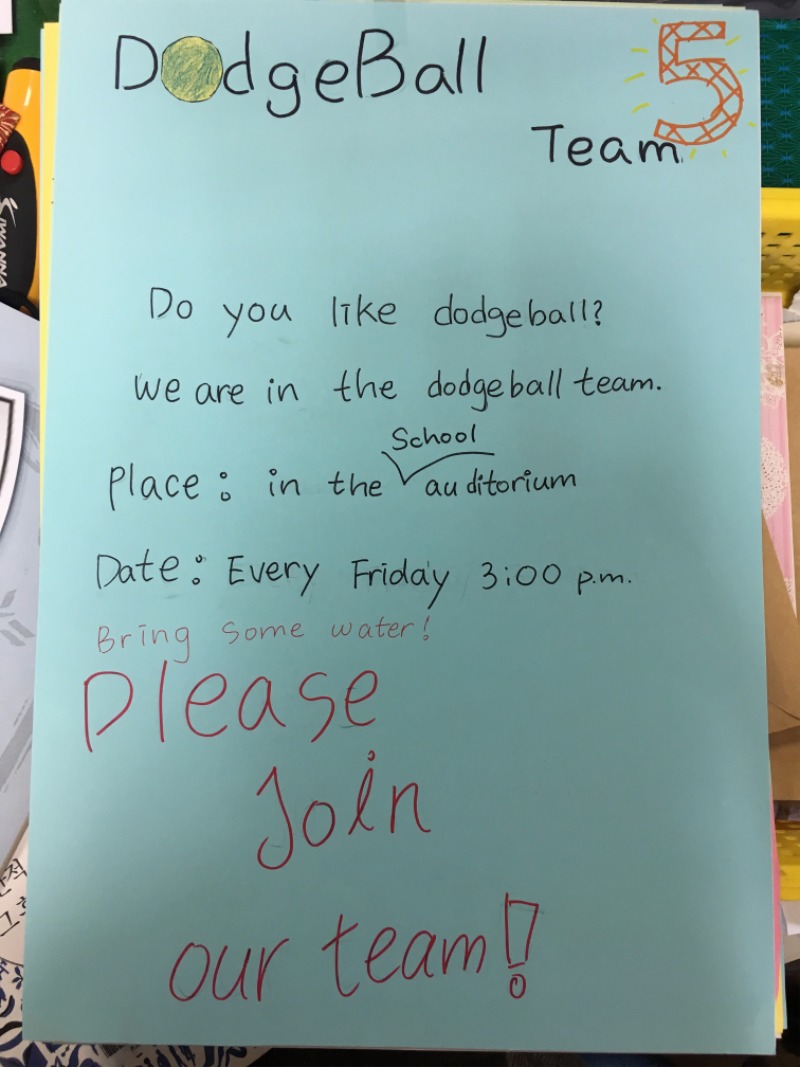 DodgeBall
Team 5
Do you like dodgeball?
We are in the dodgeball team.
Place: in the School auditorium
Date: Every Friday 3:00 p.m.
Bring some water!
Please
Join
our team!